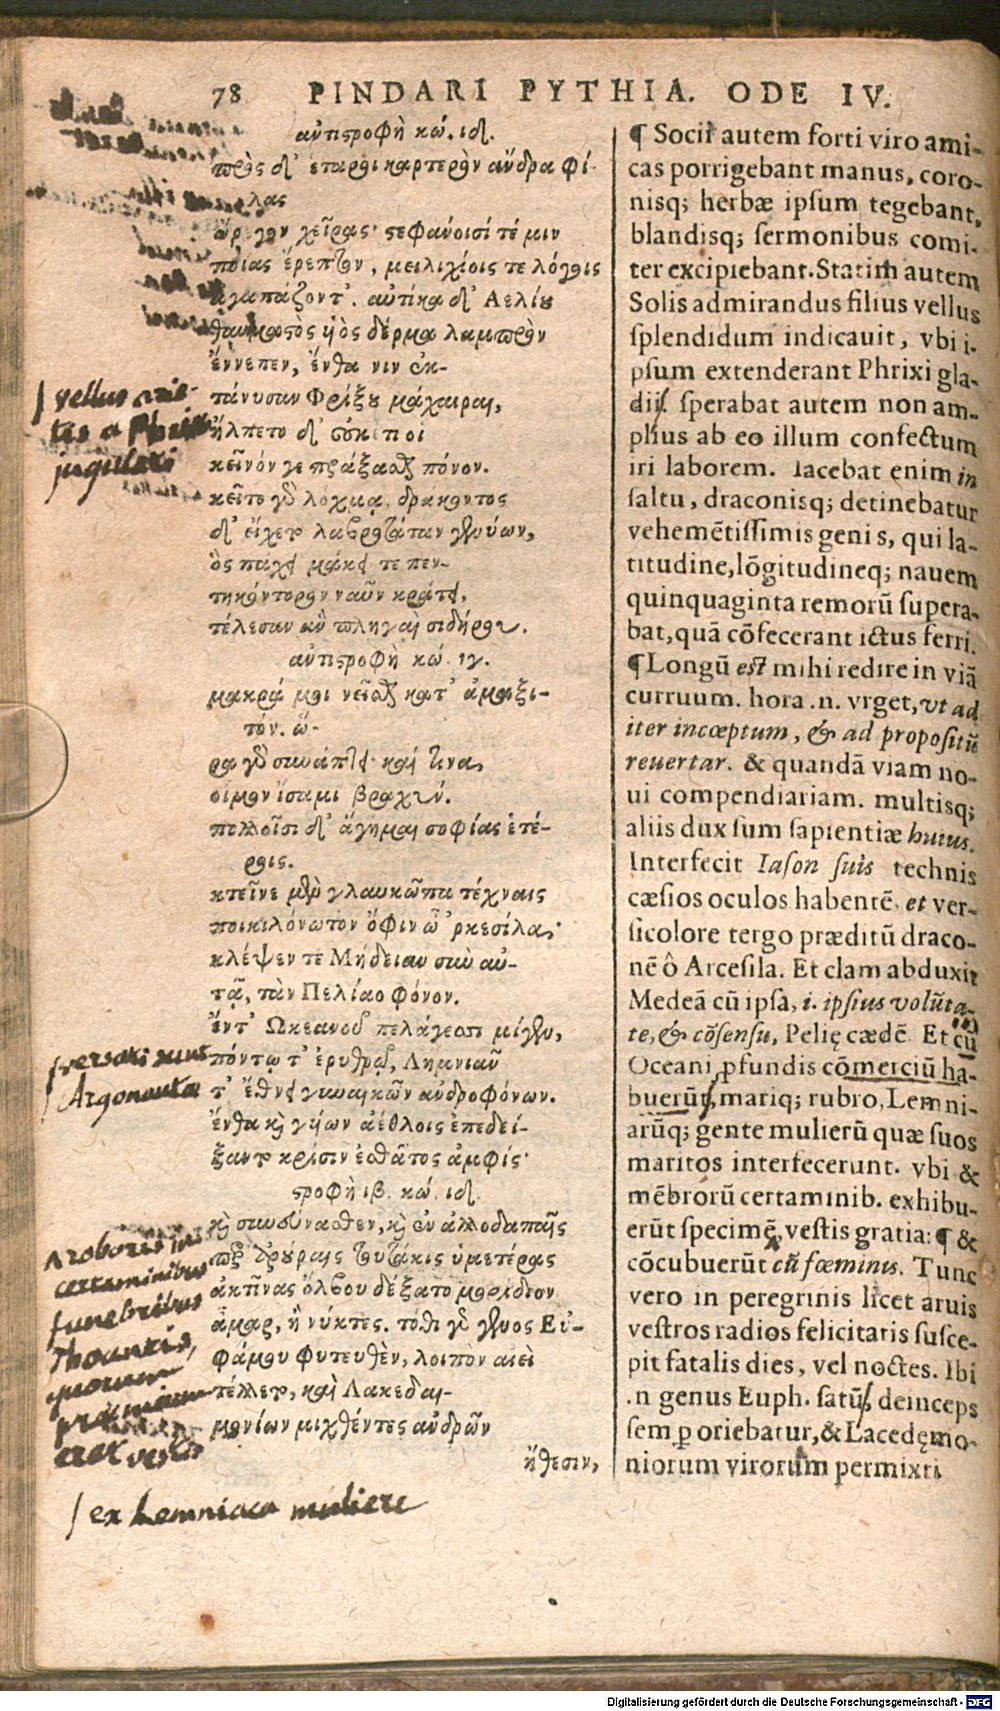 78 PINDARI PYTHIA. ODE IV.
ἀντιστροφὴ κώ. ιδ.
πρὸς δ' ἑταῖροι καρτερὸν ἄνδρα φί-
λας
ὤρεγον χεῖρας· στεφάνοισί τέ μιν
ποίας ἔρεπτον, μειλιχίοις τε λόγοις
ἀγαπάζοντ'. αὐτίκα δ' Ἀελίου
θαυμαστὸς υἱὸς δέρμα λαμπρὸν
ἔννεπεν, ἔνθα νιν ἐκ-
τάνυσαν Φρίξου μάχαιραι,
ἤλπετο δ' οὐκέτι οἱ
κεῖνόν γε πράξαθαι πόνον.
κεῖτο γὰρ λόχμᾳ. δράκοντος
δ' εἴχετο λαβροτάταν γενύων,
ὃς πάχει μάκει τε πεν-
τηκόντορον ναῦν κράτει,
τέλεσαν ἃν πληγαὶ σιδήρου.
ἀντιστροφὴ κώ. ιγ.
μακρά μοι νεῖσθαι κατ' ἀμαξι-
τόν. ὥ-
ρα γὰρ συνάπτει· καί τινα,
οἶμον ἴσαμι βραχύν.
πολλοῖσι δ' ἅγημαι σοφίας ἑτέ-
ροις.
κτεῖνε μὲν γλαυκῶπα τέχναις
ποικιλόνωτον ὄφιν ὦ 'ρκεσίλα·
κλέψεν τε Μήδειαν σὺν αὐ-
τᾷ, τὰν Πελίαο φόνον.
ἔντ' Ὠκεανοῦ πελάγεσσι μίγεν,
πόντῳ τ' ἐρυθρῷ, Λημνιᾶν
τ' ἔθνει γυναικῶν ἀνδροφόνων.
ἔνθα καὶ γυίων ἀέθλοις ἐπεδεί-
ξαντο κρίσιν ἐσθᾶτος ἀμφίς·
στροφὴ ιβ. κώ. ιδ.
καὶ συνεύνασθεν, καὶ ἐν ἀλλοδαπαῖς
περ ἀρούραις τουτάκις ὑμετέρας
ἀκτῖνας ὄλβου δέξατο μοιρίδιον
ἆμαρ, ἢ νύκτες. τόθι γὰρ γένος Εὐ-
φάμου φυτευθὲν, λοιπὸν αἰεὶ
τέλλετο, καὶ Λακεδαι-
μονίων μιχθέντες ἀνδρῶν
ἤθεσιν,
¶ Socii autem forti viro ami-
cas porrigebant manus, coro-
nisq; herbæ ipsum tegebant,
blandisq; sermonibus comi-
ter excipiebant. Statim autem
Solis admirandus filius vellus
splendidum indicauit, vbi i-
psum extenderant Phrixi gla-
dii. sperabat autem non am-
plius ab eo illum confectum
iri laborem. Iacebat enim in
saltu, draconisq; detinebatur
vehemẽtissimis genis, qui la-
titudine, lõgitudineq; nauem
quinquaginta remorũ supera-
bat, quã cõfecerant ictus ferri.
¶ Longũ est mihi redire in viã
curruum. hora .n. vrget, vt ad
iter incœptum, & ad propositũ
reuertar. & quandã viam no-
ui compendiariam. multisq;
aliis dux sum sapientiæ huius.
Interfecit Iason suis technis
cæsios oculos habentẽ, et ver-
sicolore tergo præditũ draco-
nẽ ô Arcesila. Et clam abduxit
Medeã cũ ipsa, i. ipsius volũta-
te, & cõsensu, Pelię cædẽ. Et cũ
Oceani ꝓfundis cõmerciũ ha-
buerũt, mariq; rubro, Lemni-
arũq; gente mulierũ quæ suos
maritos interfecerunt. vbi &
mẽbrorũ certaminib. exhibu-
erũt specimẽ, vestis gratia: ¶ &
cõcubuerũt cũ fœminis. Tunc
vero in peregrinis licet aruis
vestros radios felicitaris susce-
pit fatalis dies, vel noctes. Ibi
.n genus Euph. satũ, deinceps
semꝑ oriebatur, & Lacedęmo-
niorum virorum permixti
vellus arie-
tis a Phrixo
jugulati
versati sunt
Argonautæ
certaminibus
funebribus
Thoantis,
quorum
præmium
erat vestis
ex Lemniaca muliere
Digitalisierung gefördert durch die Deutsche Forschungsgemeinschaft - DFG